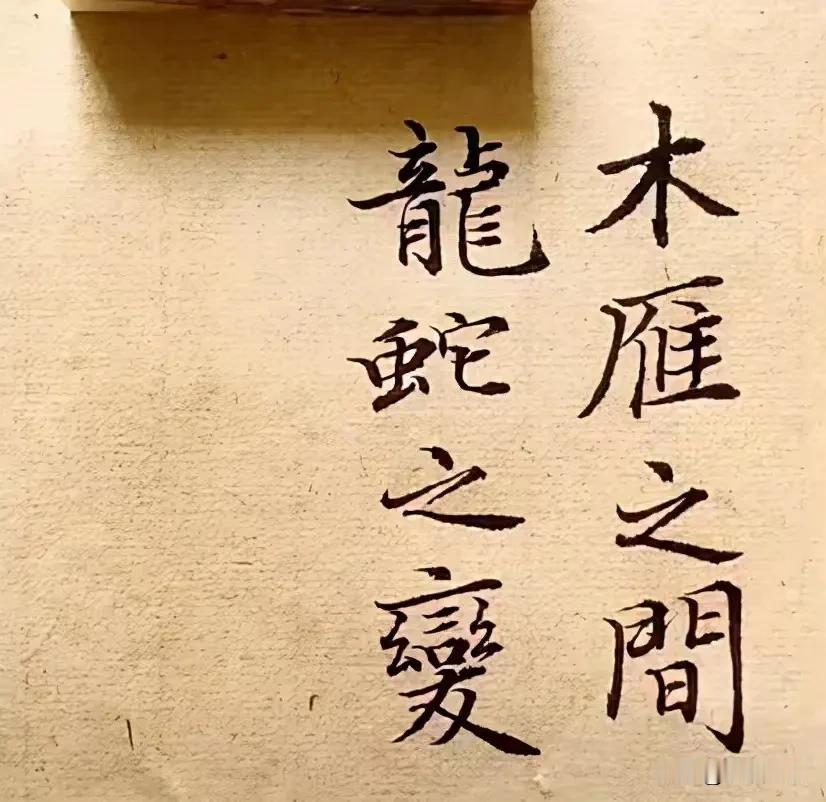 木雁之間
龍蛇之變